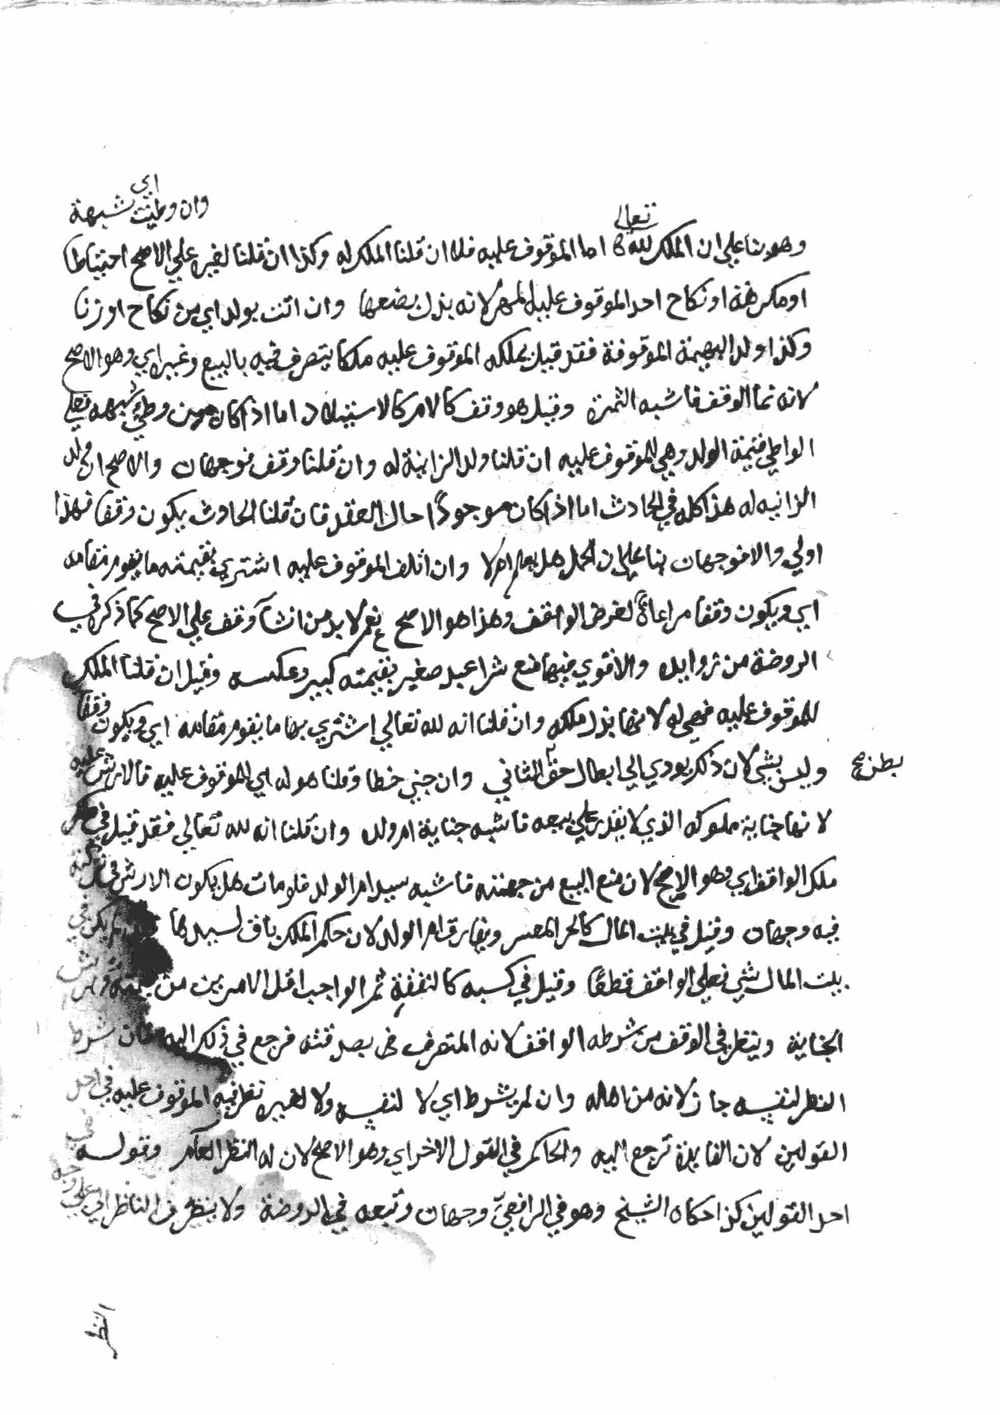 وان وطيت اي بشبهة
وهو بنا علي ان الملك لله تعالي اما الموقوف عليه فلا ان قلنا الملك له وكذا ان قلنا لغيره علي الاصح احتياطا
او مكرهة او نكاح احد الموقوف عليه المهر لانه بدل بضعها وان اتت بولد اي من نكاح او زنا
وكذا ولد البهيمة الموقوفة فقد قيل يملكه الموقوف عليه ملكا يتصرف فيه بالبيع وغيره اي وهو الاصح
لانه نما الوقف فاشبه الثمرة وقيل هو وقف كالام كالاستيلاد اما اذا كان من وطي شبهة فعلي
الواطي قيمة الولد وهي للموقوف عليه ان قلنا ولد الزانية له وان قلنا وقف فوجهان والاصح ان ولد
الزانية له هذا كله في الحادث اما اذا كان موجودًا حال العقد فان قلنا الحادث يكون وقفا فهذا
اولي والا فوجهان بنا علي ان الحمل هل يعلم ام لا وان اتلف الموقوف عليه اشتري بقيمته ما يقوم مقامه
اي ويكون وقفا مراعاةً لغرض الواقف وهذا هو الاصح نعم لا بد من انشآ وقف علي الاصح كما ذكره في
الروضة من زوايده والاقوي فيها منع شرا عبد صغير بقيمته كبير وعكسه وقيل ان قلنا الملك
للموقوف عليه فهي له لانها بدل ملكه وان قلنا انه لله تعالي اشتري بها ما يقوم مقامه اي ويكون وقفا
وليس بشي لان ذلك يودي الي ابطال حق البطن الثاني وان جني خطا وقلنا هو له اي الموقوف عليه فالارش عليه
بطن صح
لانها جناية مملوكه الذي لا يقدر علي بيعه فاشبه جناية ام ولد وان قلنا انه لله تعالي فقد قيل في
ملك الواقف اي وهو الاصح لان منع البيع من جهته فاشبه سيد ام الولد فلو مات هل يكون الارش في تركته
فيه وجهان وقيل في بيت المال كالحر المعسر ويفارق ام الولد لان حكم الملك باق لسيدها يكن في
بيت المال شي فعلي الواقف قطعًا وقيل في كسبه كالنفقة ثم الواجب اقل الامرين من قيمته وارش
الجناية وينظر في الوقف من شرطه الواقف لانه المتصرف في بصدقته فرجع في ذلك اليه فان شرط
النظر لنفسه جاز لانه من اهله وان لم يشرط اي لا لنفسه ولا لغيره نظر فيه الموقوف عليه في احد
القولين لان الفايدة ترجع اليه والحاكم في القول الاخر اي وهو الاصح لان له النظر العآم وقوله في
احد القولين كذا حكاه الشيخ وهو في الرافعي وجهان وتبعه في الروضة ولا يتصرف الناظر الي علي وجه
النظر